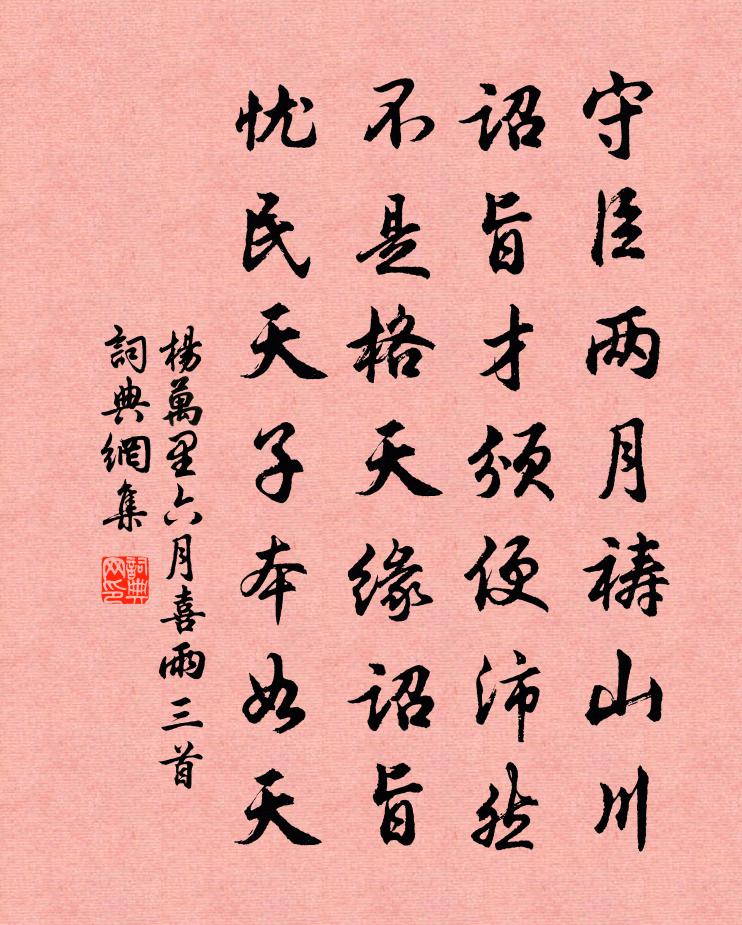 守臣两月祷山川
诏旨才颁便沛然
不是格天缘诏旨
忧民天子本如天
楊萬里六月喜雨三首
詞典網集
詞典网印